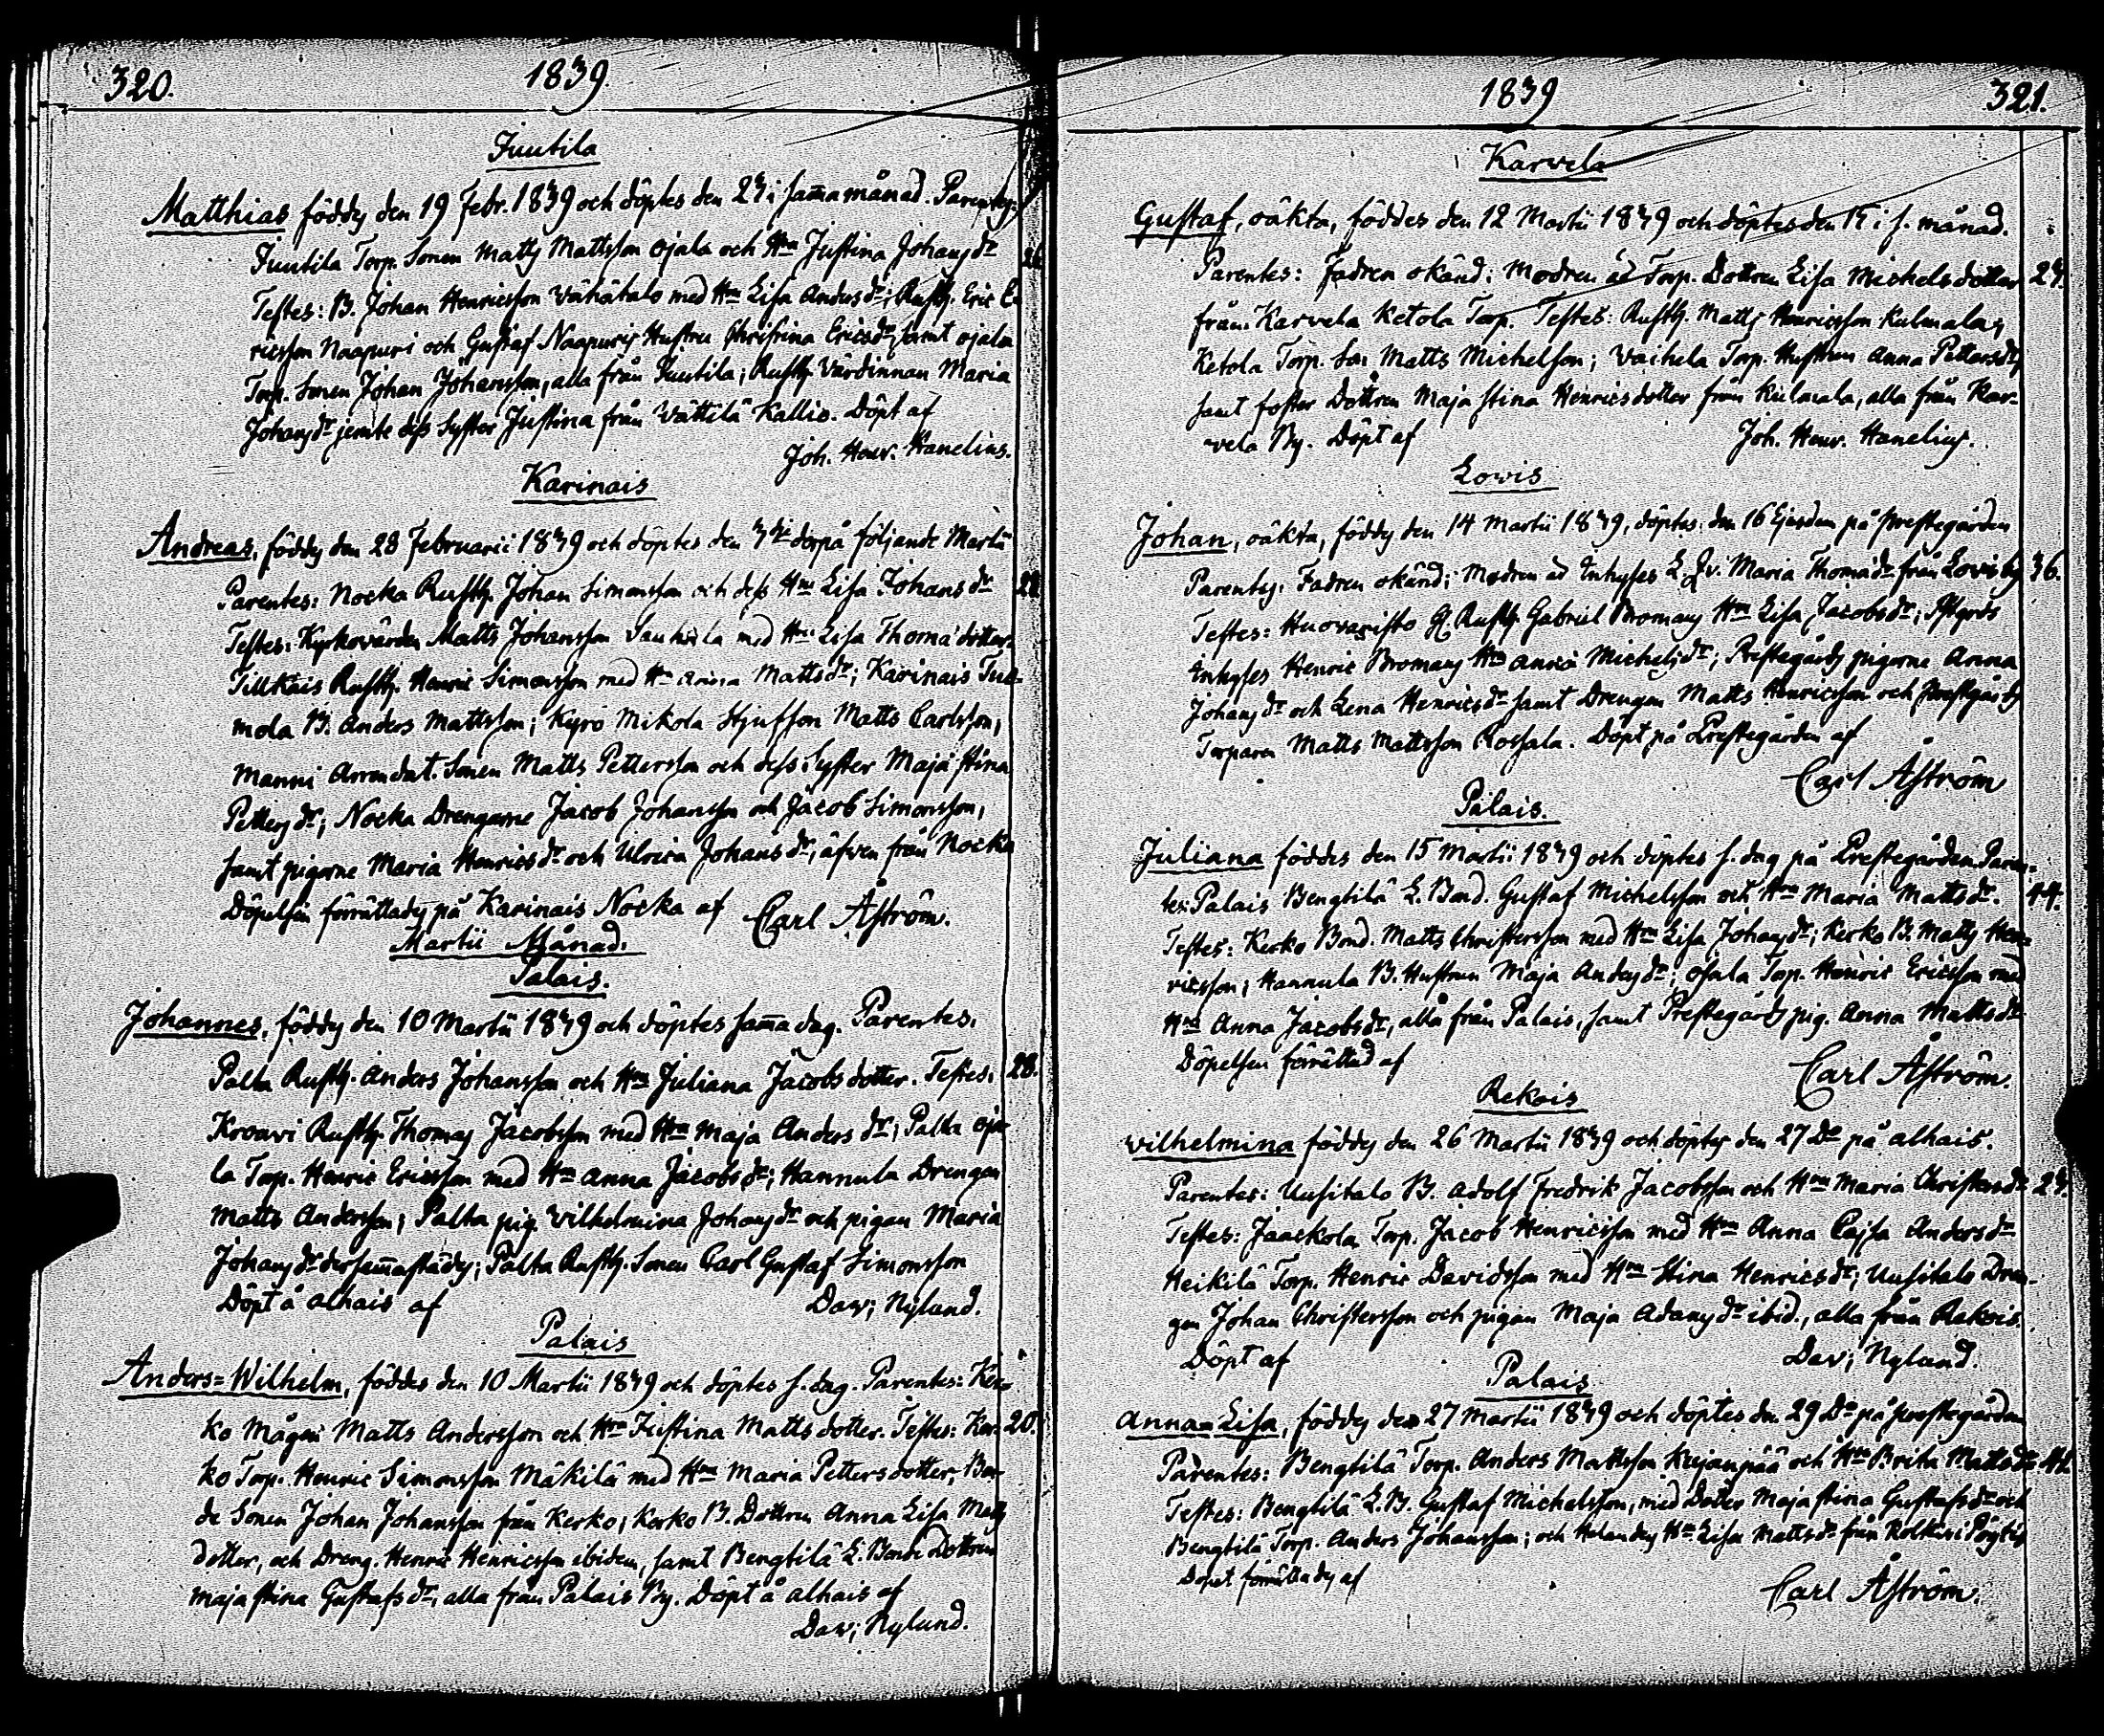 320.
1839.
Juutila
Matthias föddes den 19 Febr. 1839 och döptes den 23 i samma månad. Parentes:
Juutila Torp. Sonen Matts Mattsson Ojala och Hru Justina Johansdr 26.
Testes: B. Johan Henricsson Vähätalo med Hru Lisa Andersdr; Rusth. Eric E-
ricsson Naapuri och Gustaf Naapuris Hustru Christina Ericsdr, samt Ojala
Torp. Sonen Johan Johansson, alla från Juutila; Rusth. Värdinnan Maria
Johansdr jemte dess Syster Justina från Vättilä Kallio. Döpt af
Joh. Henr. Hanelius.
Karinais
Andreas, föddes den 28 Februarii 1839 och döptes den 3die derpå följande Martii
Parentes: Nocka Rusth. Johan Simonsson och dess Hru Lisa Johansdr 28.
Testes: Kyrkovärden Matts Johansson Sauhula med Hru Lisa Thomædotter,
Tillkais Rusth. Henric Simonsson med Hru Anna Mattsdr; Karinais Tuo-
mola B. Anders Mattsson; Kyrö Mikola Stjufson Matts Carlsson,
Manni Arrendat. Sonen Matts Pettersson och dess Syster Maja Stina
Pettersdr; Nocka Drengarne Jacob Johansson och Jacob Simonsson,
samt pigorne Maria Henricsdr och Ulrica Johansdr, äfven från Nocka
Döpelsen förrättades på Karinais Nocka af Carl Åström.
Martii Månad.
Palais.
Johannes, föddes den 10 Martii 1839 och döptes samma dag. Parentes:
Palta Rusth. Anders Johansson och Hru Juliana Jacobsdotter. Testes: 28.
Krouvi Rusth. Thomas Jacobsson med Hru Maja Andersdr; Palta Oja-
la Torp. Henric Ericsson med Hru Anna Jacobsdr; Hannula Drengen
Matts Andersson; Palta pig. Vilhelmina Johansdr och pigan Maria
Johansdr dersammastädes; Palta Rusth. Sonen Carl Gustaf Simonsson
Döpt å alhais af Dav; Nylund.
Palais
Anders-Wilhelm, föddes den 10 Martii 1839 och döptes s. dag. Parentes: Ker-
ko Mågen Matts Andersson och Hru Justina Mattsdotter. Testes: Ker- 20.
ko Torp. Henric Simonsson Mäkilä med Hru Maria Pettersdotter, Bon-
de Sonen Johan Johansson från Kerko; Kerko B. Dottren Anna Lisa Matts
dotter, och Dreng. Henric Henricsson ibidem, samt Bengtilä L. Bonde Dottren
Maja Stina Gustafsdr, alla från Palais By. Döpt å alhais af
Dav; Nylund.
1839
321.
Karvela
Gustaf, oäkta, föddes den 12 Martii 1839 och döptes den 15 i s. månad.
Parentes: Fadren okänd: Modren är Torp. Dottren Lisa Michelsdotter 23.
från Karvela Ketola Torp. Testes: Rusth. Matts Henricsson Kulmala,
Ketola Torp. Son Matts Michelson; Vaihela Torp. Hustrun Anna Pettersdr,
samt foster Dottren Maja Stina Henricsdotter från Kulmala, alla från Kar-
vela By. Döpt af Joh. Henr. Hanelius.
Lowis
Johan, oäkta, föddes den 14 Martii 1839, döptes den 16 Ejusdem på prestegården
Parentes: Fadren okänd; Modren är Inhyses L. Qv. Maria Thomædr från Lovis by 36.
Testes: Huovaristo Gl. Rusth. Gabriel Bromans Hru Lisa Jacobsdr;
Inhyses Henric Bromans Hru Anna Michelsdr; Prestegårds pigorne Anna
Johansdr och Lena Henricsdr samt Drengen Matts Henricsson och prestgårds
Torparen Matts Mattsson Rossala. Döpt på Prestegården af
Carl Åström
Palais.
Juliana föddes den 15 Martii 1839 och döptes s. dag på Prestegården Paren-
tes: Palais Bengtilä L. Bond. Gustaf Michelsson och Hru Maria Mattsdr. 44.
Testes: Kerko Bond. Matts Christersson med Hru Lisa Johansdr; Kerko B. Matts Hen-
ricsson; Hannula B. Hustrun Maja Andersdr; Ojala Torp. Henric Ericsson med
Hru Anna Jacobsdr, alla från Palais, samt Prestegårds pig. Anna Mattsdr
Döpelsen förrättad af Carl Åström.
Rekois
Vilhelmina föddes den 26 Martii 1839 och döptes den 27 Do på alhais.
Parentes: Uusitalo B. Adolf Fredrik Jacobsson och Hru Maria Christersdr 23.
Testes: Jaackola Torp. Jacob Henricsson med Hru Anna Cajsa Andersdr
Heikilä Torp. Henric Davidsson med Hru Stina Henricsdr; Uusitalo Dren-
gen Johan Christersson och pigan Maja Adamsdr ibid., alla från Rekois.
Döpt af Dav; Nylund.
Palais
Anna-Lisa, föddes den 27 Martii 1839 och döptes den 29 Do på prestegården
Parentes: Bengtilä Torp. Anders Mattsson Kujanpää och Hru Brita Mattsdr. 41.
Testes: Bengtilä L.B. Gustaf Michelsson, med Dotter Maja Stina Gustafsdr och
Bengtilä Torp. Anders Johansson; och Hru Lisa Mattsdr från
Dopet förrättades af
Carl Åström.